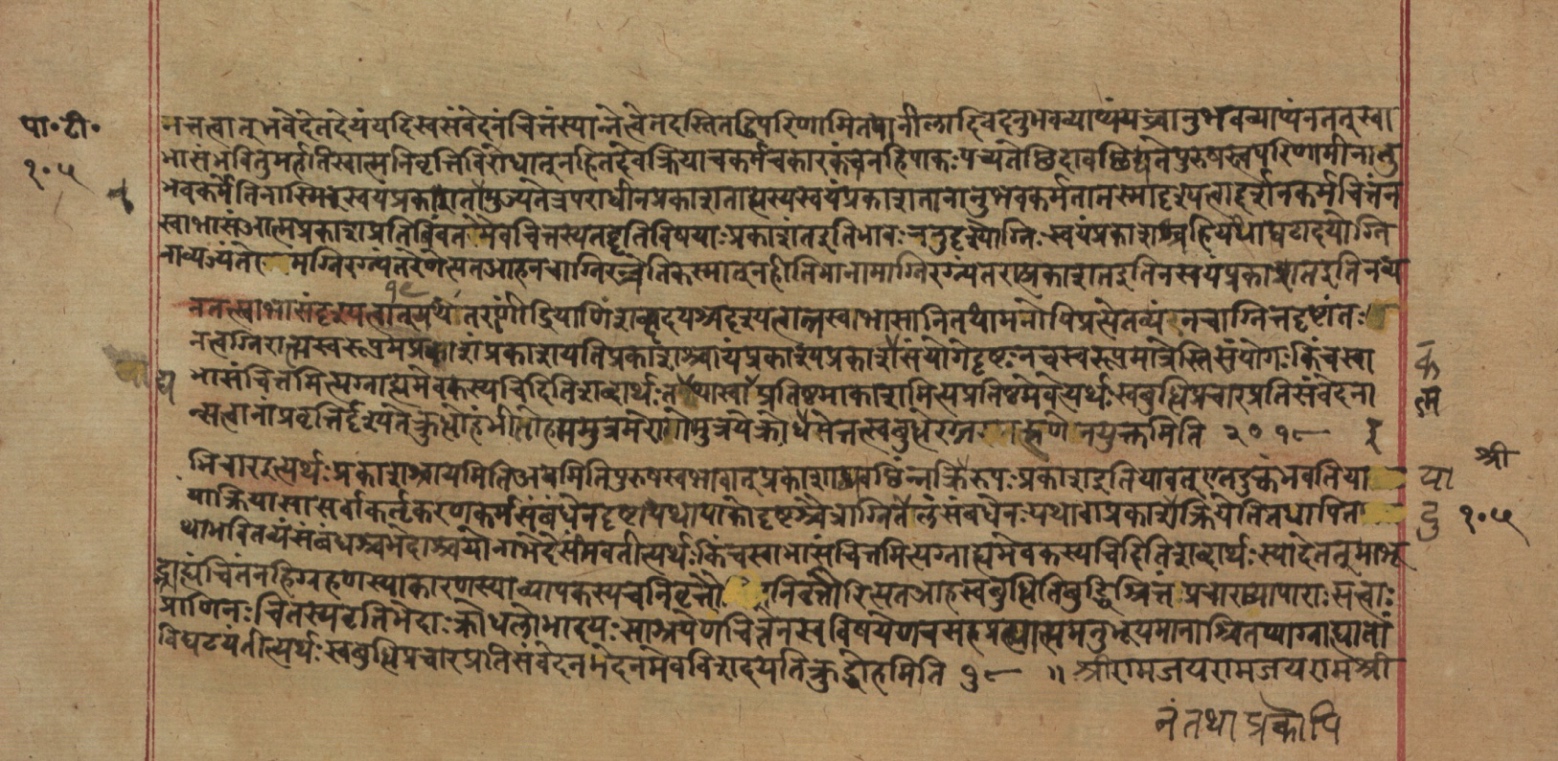 पा॰टी॰
१०५
नत्तत्वात् भवेदेतदेयंयदिस्वसंवेदनंचित्तंस्यान्नेत्वेतदस्तितद्धिपरिणामितयानीलादिवदनुभवव्याप्यंयच्चानुभवव्याप्यंनतत्स्वा
भासंभवितुमर्हतिस्वात्मनिवृत्तिविरोधात्नहितदेवक्रियाचकर्मचकारकंचनहिपाकःपच्यतेछिदावछिद्यतेपुरुषस्त्वपरिणामीनानु
भवकर्मेतिनास्मिन्स्वयंप्रकाशतायुज्यतेअपराधीनप्रकाशताह्यस्यस्वयंप्रकाशतानानुभवकर्मतातस्मादृश्यत्वाद्दर्शनकर्मचित्तंन
स्वाभासंआत्मप्रकाशप्रतिबिंबतयैवचित्तस्यतद्वृत्तिविषयाःप्रकाशंतइतिभावःननुदृश्योग्निःस्वयंप्रकाशश्चनहियथाघटादयोग्नि
नाव्यज्यंतेमग्निरग्न्यंतरेणेत्यतआहनचाग्निरत्रेतिकस्मात्नहीतिमानामाग्निरग्न्यंतरात्प्रकाशतइतिनस्वयंप्रकाशतइतिनव्य
१९
नतत्स्वाभासंदृश्यत्वात्यथेतराणींद्रियाणिशब्दादयश्चदृश्यत्वान्नस्वाभासानितथामनोपिप्रत्येतव्यंनचाग्नित्रदृष्टांतः
नत्वग्निरात्मस्वरूपमप्रकाशंप्रकाशयतिप्रकाशश्चायंप्रकाश्यप्रकाशसंयोगेदृष्टःनचस्वरूपमात्रेस्तिसंयोगःकिंचस्वा
भासंचित्तमित्यग्राह्यमेवकस्यचिदितिशब्दार्थःतद्यथास्वाप्रतिष्ठमाकाशमित्यप्रतिष्ठमेवेत्यर्थःस्वबुधिप्रचारप्रतिसंवेदना
त्सत्वानांप्रवृत्तिर्दृश्यतेक्रुधोहंभीतोहममुत्रमेरागोमुत्रमेक्रोधइत्येतत्स्वबुधेरग्रहणेनयुक्तमिति २०१९
भिचारइत्यर्थःप्रकाशश्चायमितिअयमितिपुरुषस्वभावात्प्रकाशाद्व्यवछिंनत्तिक्रियारूपःप्रकाशइतियावत्एतदुक्तंभवतिया
याक्रियासासर्वाकर्तृकरणकर्मसंबंधेनदृष्टायथापाकोदृष्टश्चैत्राग्नितंडुलसंबंधेनःयथावाप्रकाशोक्रियेतितथापितः
थाभवितव्यंसंबंधश्चभेदाश्रयोनाभेदेसंभवतीत्यर्थःकिंचस्वाभासंचित्तमित्यग्राह्यमेवकस्यचिदितिशब्दार्थःस्यादेतत्माभू
द्ग्राह्यंचित्तंनहिग्रहणस्याकारणस्याव्यापकस्यचनिवृत्तौनिवृत्तीरित्यतआहस्वबुधितिबुद्धिश्चित्तंप्रचाराव्यापाराःसत्त्वाः
प्राणिनःचित्तस्यवृतिभेदाःक्रोधलोभादयःसाश्रयेणचित्तेनस्वविषयेणचसहप्रत्यात्ममनुभूयमानाश्चित्तस्याग्राह्यतां
विघटयंतीत्यर्थःस्वबुधिप्रचारप्रतिसंवेदनमेदनमेवविशदयतिक्रुद्धोहमिति १९ ॥ श्रीरामजयरामजयरामश्री
श्री
१०५
नं तथा प्रकाशेपि